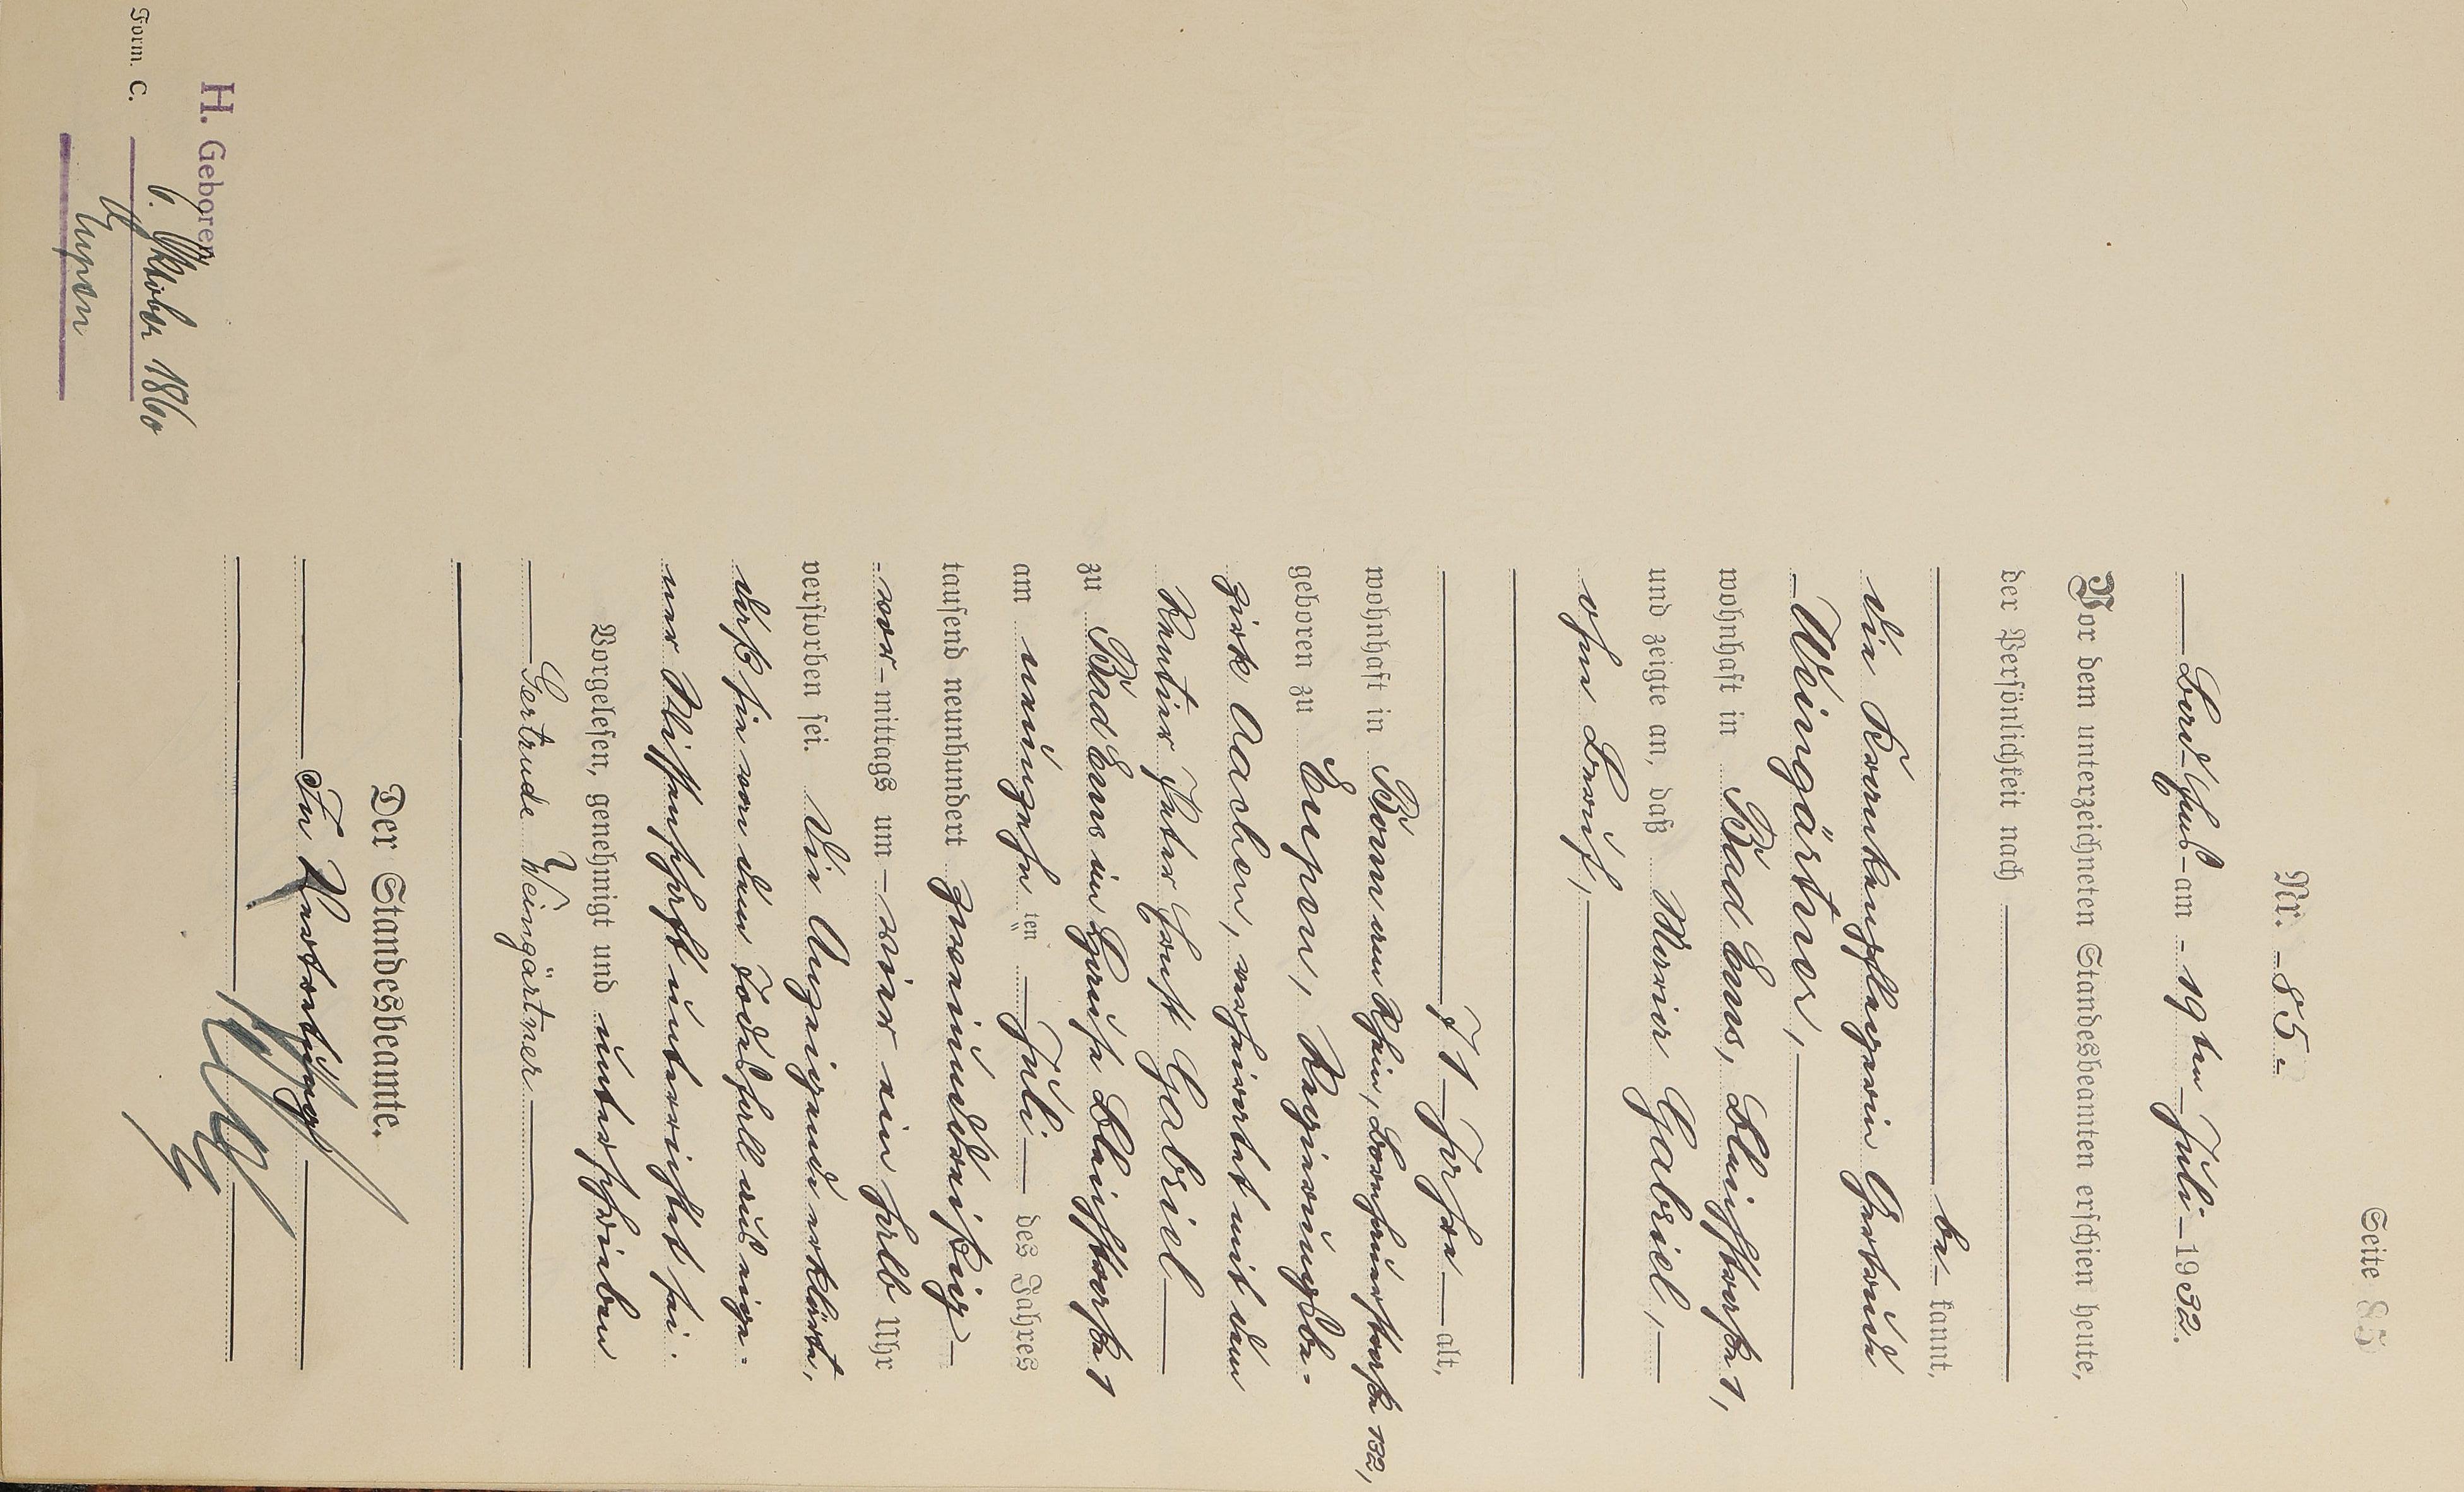 Seite 85
Nr. - 85 -
Bad Ems am - 19ten Juli - 1932.
Vor dem unterzeichneten Standesbeamten erschien heute,
der Persönlichkeit nach
be- kannt,
die Krankenpflegerin Gertrude
Weingärtner,
wohnhaft in Bad Ems, Bleichstraße 1,
und zeigte an, daß Maria Gabriel,
ohne Beruf,
71 Jahre alt,
wohnhaft in Bonn am Rhein, 132,
geboren zu Eupen, Regierungsbe-
zirk Aachen, verheiratet mit dem
Rentier Peter Ernst Gabriel
zu Bad Ems im Hause Bleichstraße 1
am neunzehnten Juli des Jahres
tausend neunhundert zweiunddreißig
- vor - mittags um - vier ein halb Uhr
verstorben sei. Die Anzeigende erklärte,
daß sie von dem Todesfall aus eige-
ner Wissenschaft unterrichtet sei.
Vorgelesen, genehmigt und unterschrieben
Gertrude Weingärtner
Der Standesbeamte.
In Vertretung
H. Geboren
6. Oktober 1860
Eupen
Form. C.